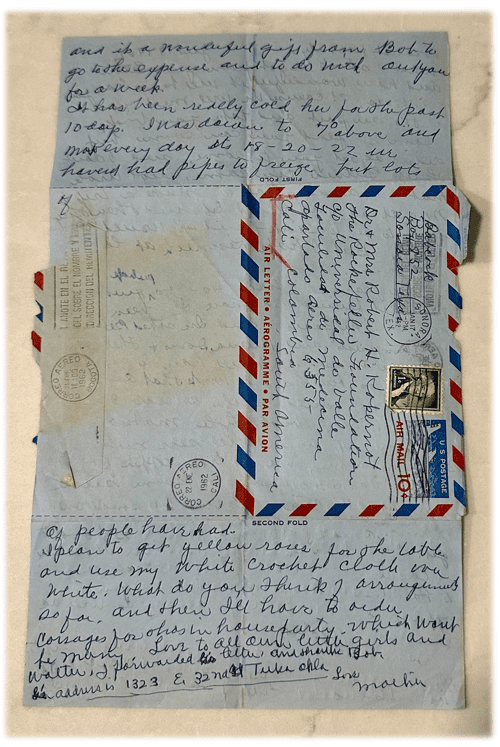 and it's a wonderful gift from Bob to
go to the expense and to do with out you
for a week.
It has been really cold here for the past
10 days. I was down to 7° above and
most every day its 18-20-22 we
havent had pipes to freeze but lots
FIRST FOLD
7
ANOTE EN EL
EL SOBRE EL NOMBRE Y
DIRECCION DEL REMITENTE
CORREO AEREO
BOGOTA
1962
CORREO AEREO
22 ENE.
1962
CALI
AIR LETTER • AÉROGRAMME • PAR AVION
Box 972
Sonora Texas
SONORA
JAN 17
PM
TEX.
Dr & Mrs Robert H. Kokernot
The Rockefeller Foundation
c/o Universidad del Valle
Facultad de Medicina
Apartado Aereo
Cali, Colombia
South America
U S POSTAGE
AIR MAIL 10¢
SECOND FOLD
of people have had.
I plan to get yellow roses for the table
and use my white crochet cloth over
white. What do you think? arrangements
so far. and then I'll have to order
corsages for those in houseparty. which wont
be many. Love to all our little girls and
Walter J. forwarded his letter and thanks Bob.
his address is 1323 E. 32nd St Tulsa Okla
Love
Mother